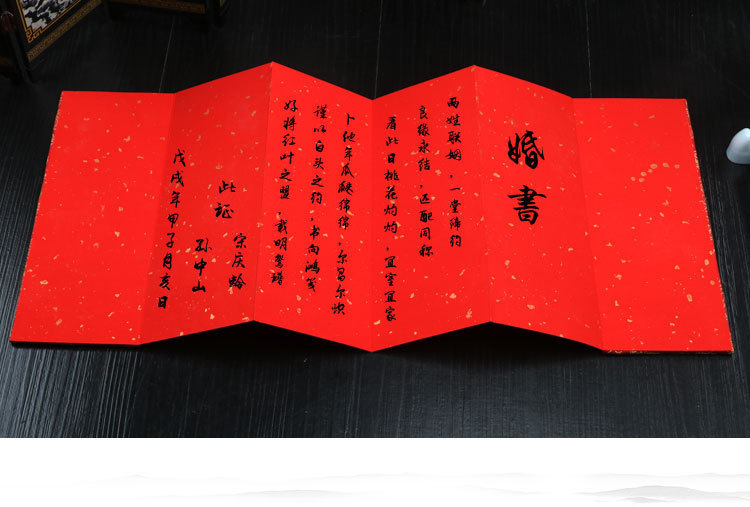 婚書
两姓联姻，一堂缔约
良缘永结，匹配同称
看此日桃花灼灼，宜室宜家
卜他年瓜瓞绵绵，尔昌尔炽
谨以白头之约，书向鸿笺
好将红叶之盟，载明鸳谱
此证
宋庆龄
孙中山
戊戌年甲子月亥日